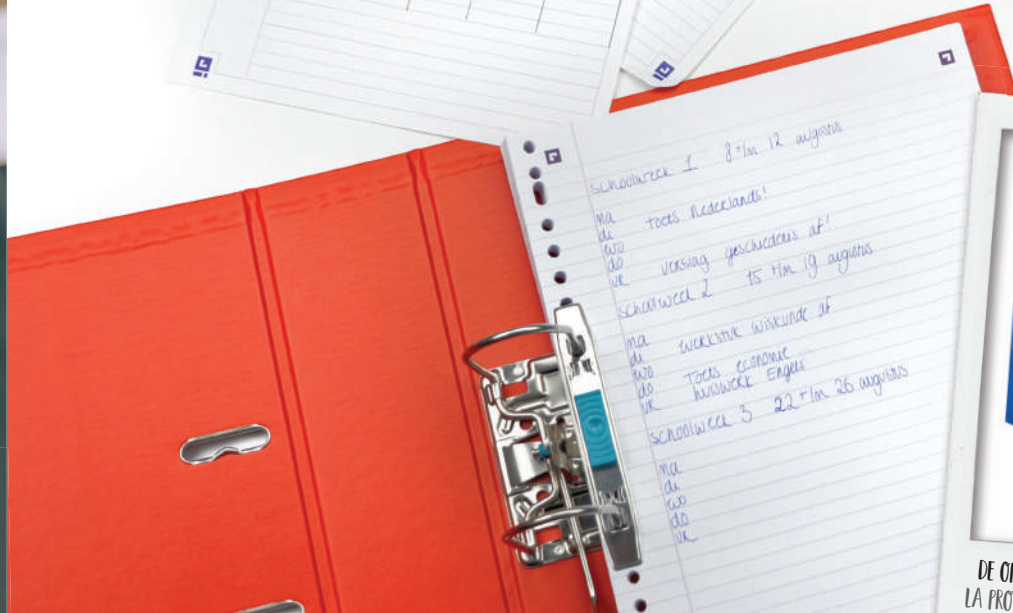 schoolweek 1 8 t/m 12 augustus
ma
di toets Nederlands!
wo
do
vr verslag geschiedenis af!
schoolweek 2 15 t/m 19 augustus
ma
di werkstuk wiskunde af
wo
do Toets economie
vr huiswerk Engels
schoolweek 3 22 t/m 26 augustus
ma
di
wo
do
vr
DE
LA